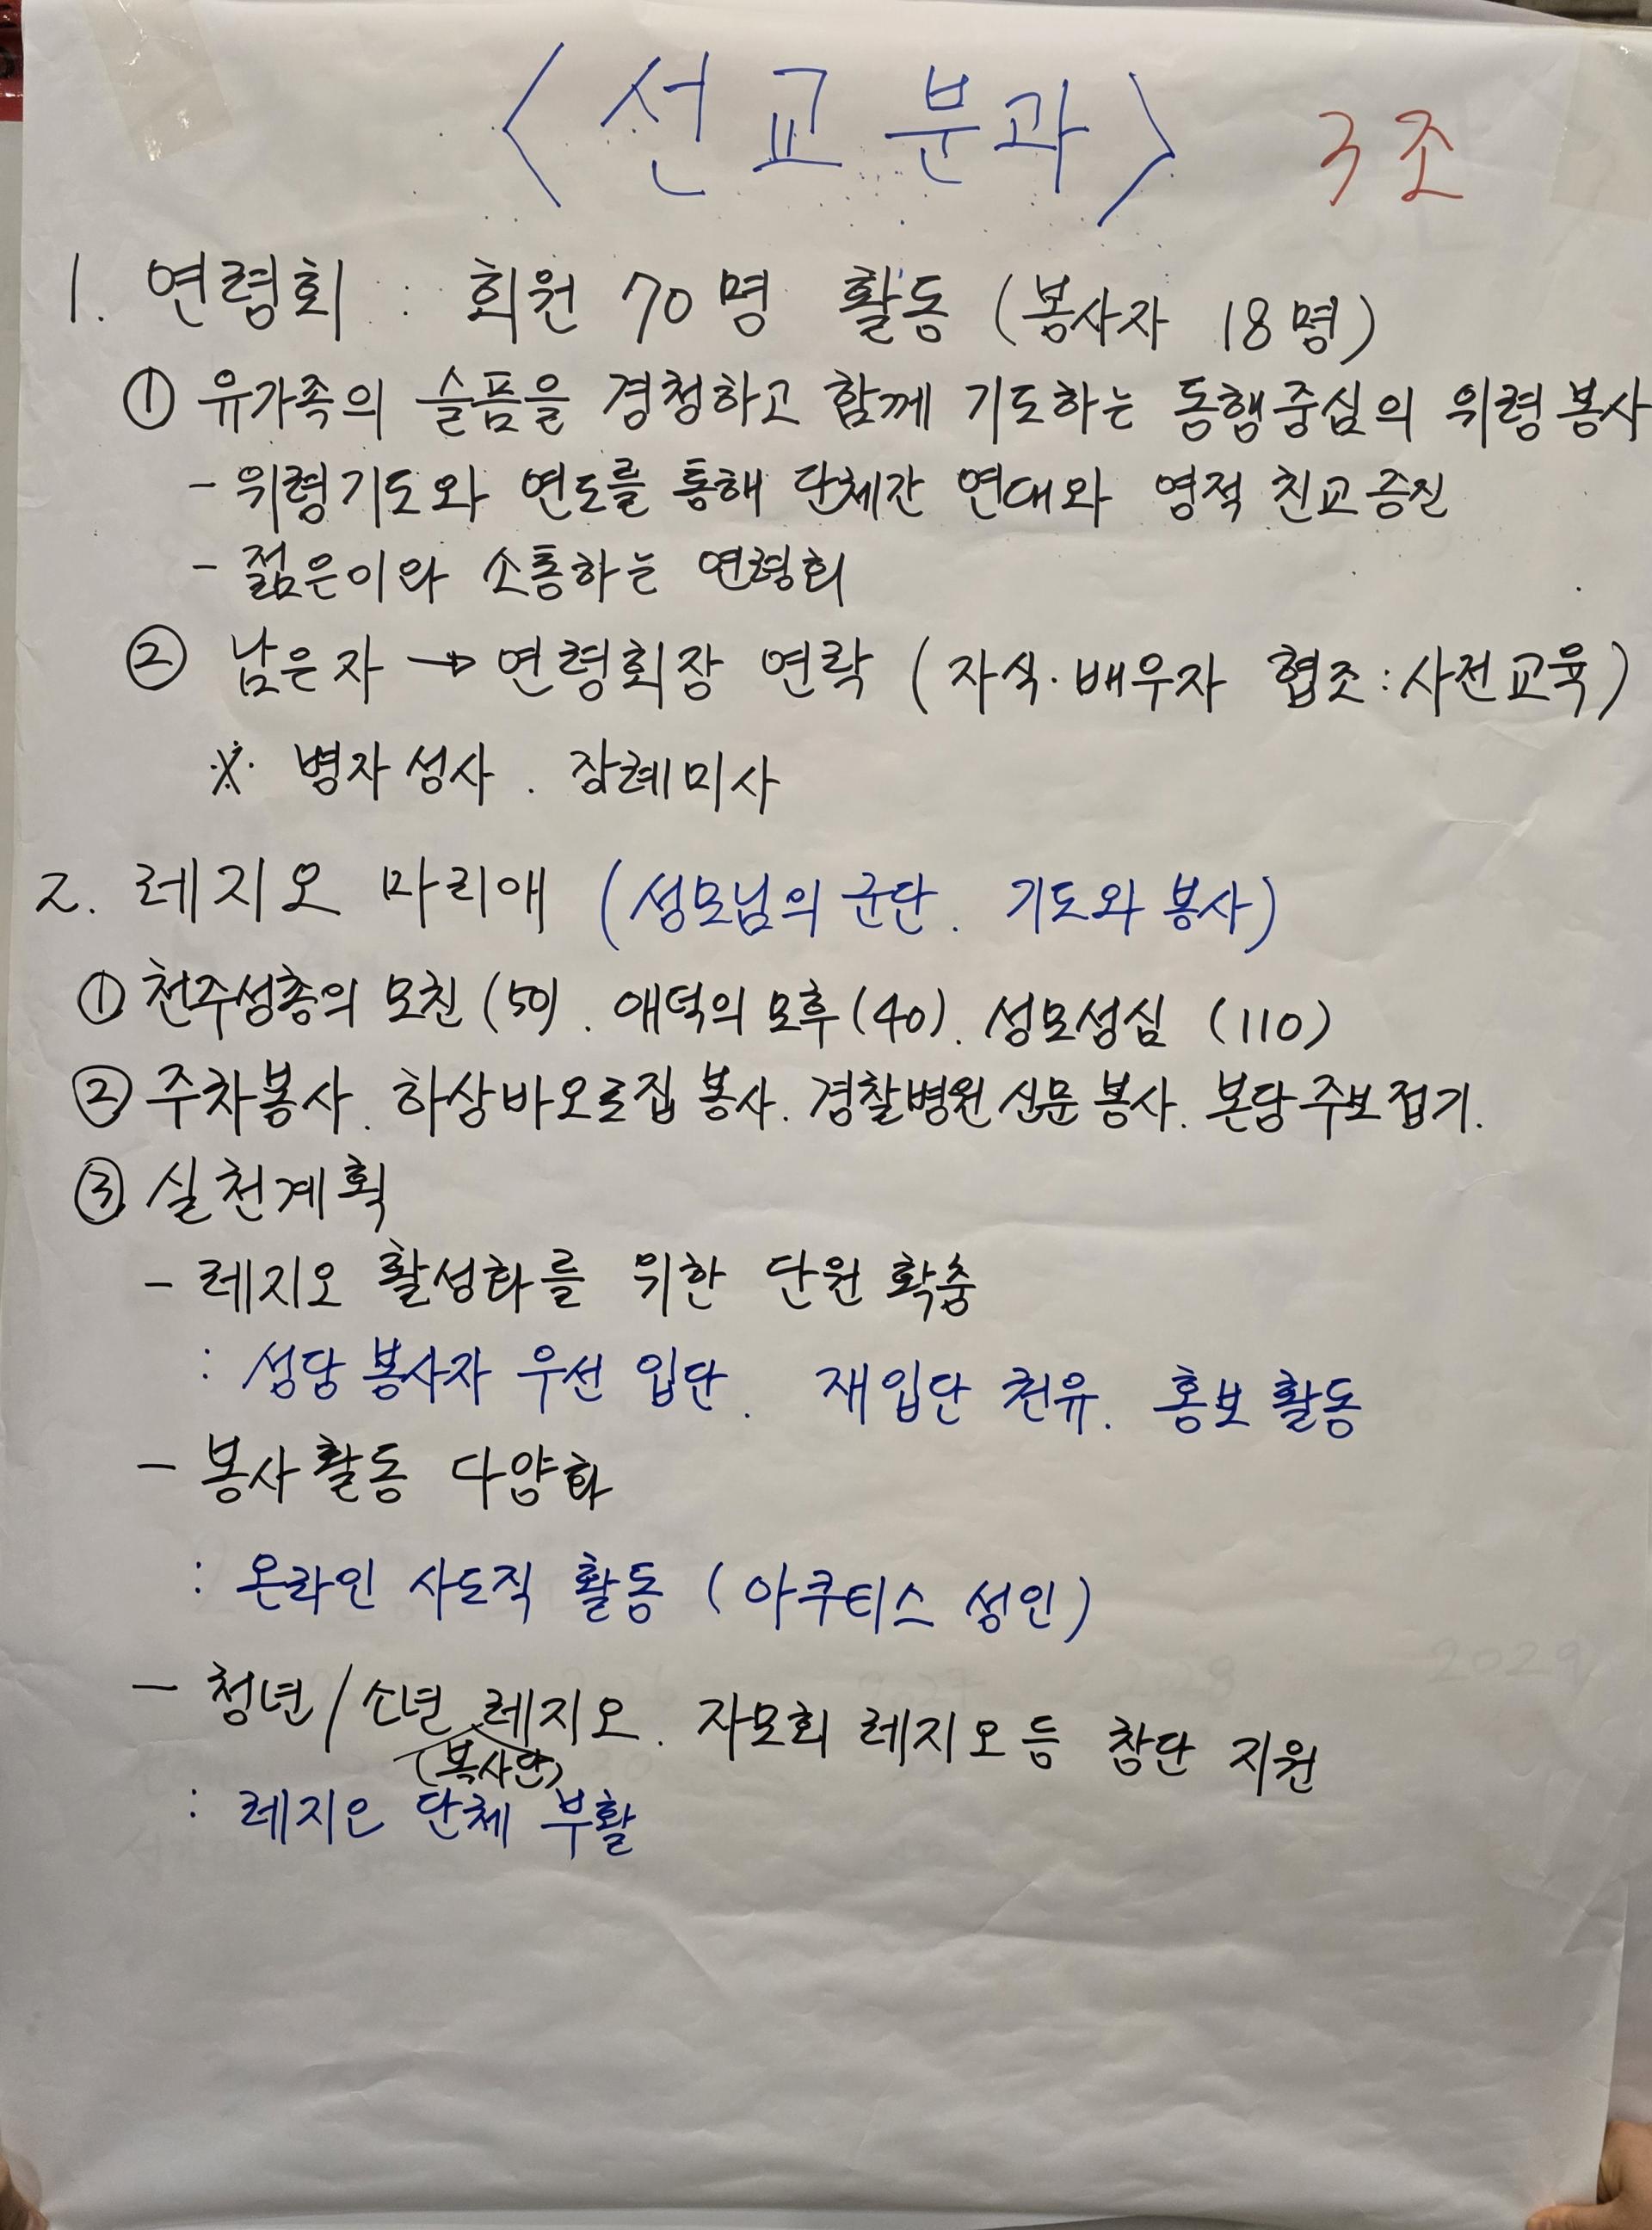 <선교분과> 3조
1. 연령회 : 회원 70명 활동 (봉사자 18명)
① 유가족의 슬픔을 경청하고 함께 기도하는 동행중심의 위령봉사
- 위령기도와 연도를 통해 단체간 연대와 영적 친교증진
- 젊은이와 소통하는 연령회
② 남은자 → 연령회장 연락 (자식·배우자 협조:사전교육)
※ 병자성사. 장례미사
2. 레지오 마리애 (성모님의 군단. 기도와 봉사)
① 천주성총의 모친(50). 애덕의 모후(40). 성모성심 (110)
② 주차봉사. 하상바오로집 봉사. 경찰병원 신문봉사. 본당주보접기.
③ 실천계획
- 레지오 활성화를 위한 단원 확충
: 성당 봉사자 우선 입단. 재입단 천유. 홍보 활동
- 봉사활동 다양화
: 온라인 사도직 활동 (아쿠티스 성인)
- 청년/소년 레지오. 자모회 레지오 등 창단 지원
(복사단)
: 레지오 단체 부활
2029